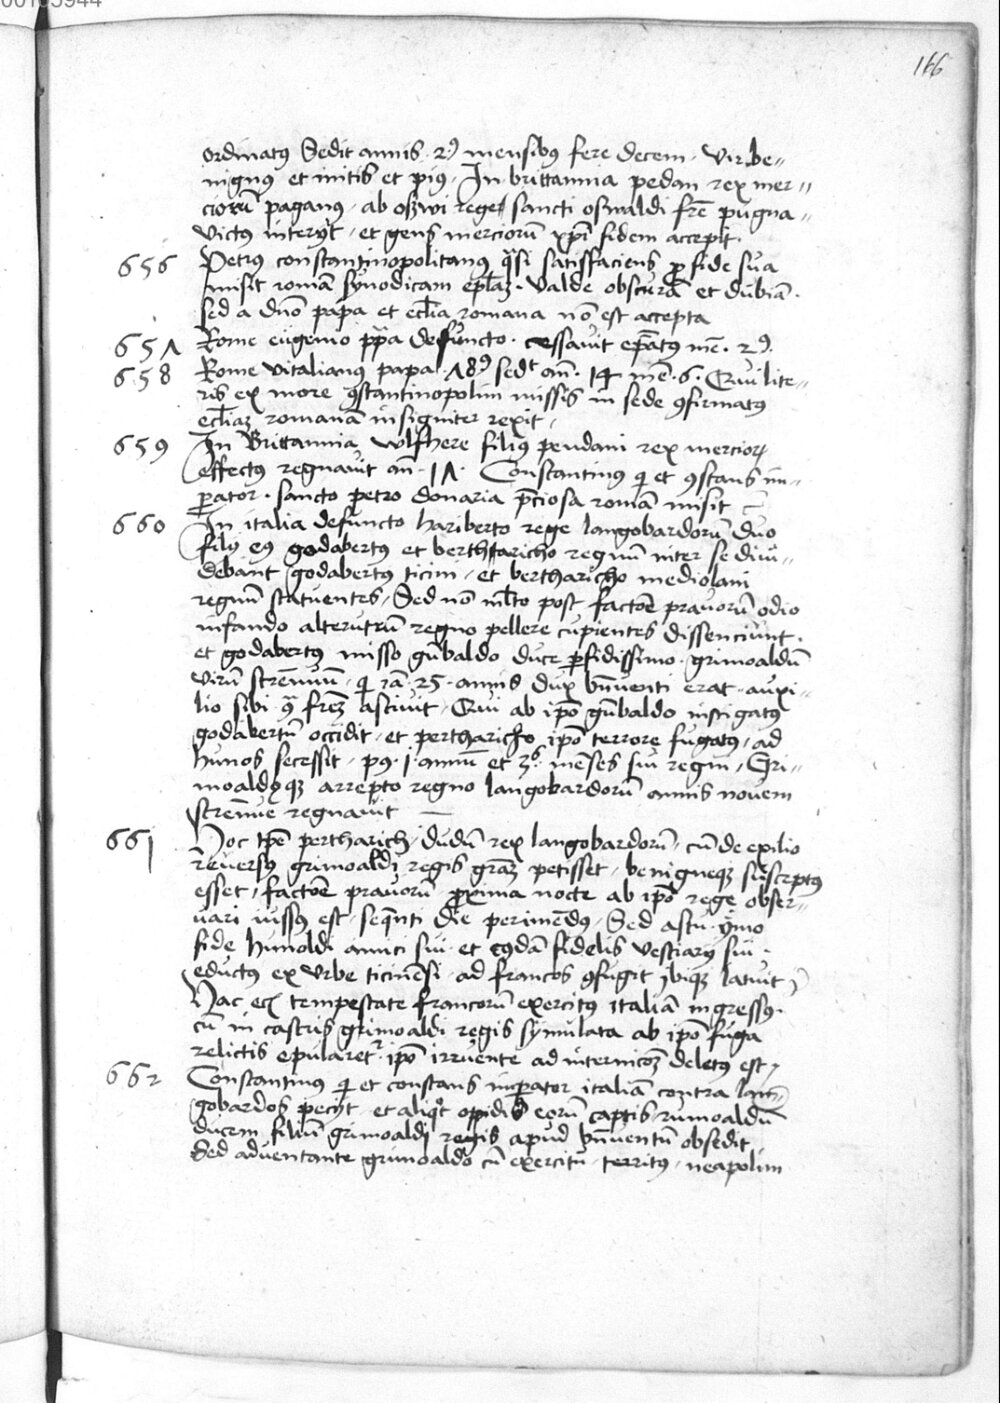 00105944
166
ordinatꝰ Sedit annis · 2 · mensibꝰ fere decem · Vir be„
nignꝰ et mitis et piꝰ · In brittannia pedan rex mer„
ciorū paganꝰ · ab oswi rege sancti oswaldi frē pugna„
victꝰ interijt · et gens merciorū xp̄i fidem accepit ·
656 Petrus constantinopolitanꝰ q̄si satisfaciens ꝓ fide sua
misit romā synodicam ep̄laꝫ · valde obscurā et dubiā ·
sed a dn̄o papa et ecl̄ia romana nō est accepta
657 Rome eugenio ppā defuncto · cessavit ep̄atꝰ mē · 2 ·
658 Rome vitalianꝰ papa · 78 · sedt an̄ · 14 mē · 6 · Qui lite„
ris ex more ꝯstantinopolim missis in sede ꝯfirmatꝰ
ecl̄iaꝫ romanā insigniter rexit ·
659 In Brittannia wlfhere filiꝰ pendani rex merciorꝝ
effectꝰ regnavit an̄ · 17 · Constantinꝰ qi et ꝯstans im„
ꝑator · sancto petro donaria p̄ciosa romā misit
660 In italia defuncto hariberto rege langobardorū duo
filij eꝰ godabertꝰ et berthtaricho regnū inter se divi„
debant godabertꝰ ticini · et bertharicho mediolani
regnū statuentes · Sed nō ml̄to post factōe pravorū odio
infando alterutrū regno pellere cupientes dissenciunt ·
et godabertꝰ misso gūbaldo duce ꝑfidissimo · grimoaldū
virū strēnuū · qi iā 25 · annis dux bn̄venti erat · auxi„
lio sibi qͣ frēꝫ ascivit · Qui ab ipō gūbaldo instigatꝰ
godabertū occidit · et pertharicho ipō terrore fugatꝰ · ad
hunos secessit · pꝰ · 1 · annū et 3s · menses sui regni · Gri„
moaldꝰqꝫ arrepto regno langobardorū annis novem
strēnue regnavit
661 Hoc tp̄e pertharich · dudū rex langobardorū · cū de exilio
reversꝰ grimoaldi regis grāꝫ petisset · benigneqꝫ susceptꝰ
esset · factōe pravorū ꝓxima nocte ab ipō rege obser„
vari iussꝰ est · seq̄nti die perimēdꝰ · Sed astu ymo
fide hunoldi amici sui · et cꝰdā fidelis vestiarij sui ·
eductꝰ ex urbe ticinēsi · ad francos ꝯfugit ibiqꝫ latuit
Hac eci tempestate francorū exercitꝰ italiā ingressꝰ ·
cū in castris grimoaldi regis symulata ab ipō fuga
relictis epularetr ipō irruente ad internicōꝫ deletꝰ est ·
662 Constantinꝰ qi et constans imꝑator italiā contra lan„
gobardos pecijt · et aliqͦt opidis eorū captis · rumoaldū
ducem filiū grimoaldi regis apud bn̄ventū obsedit
Sed adventante grimoaldo cū exercitu · territꝰ · neapolim